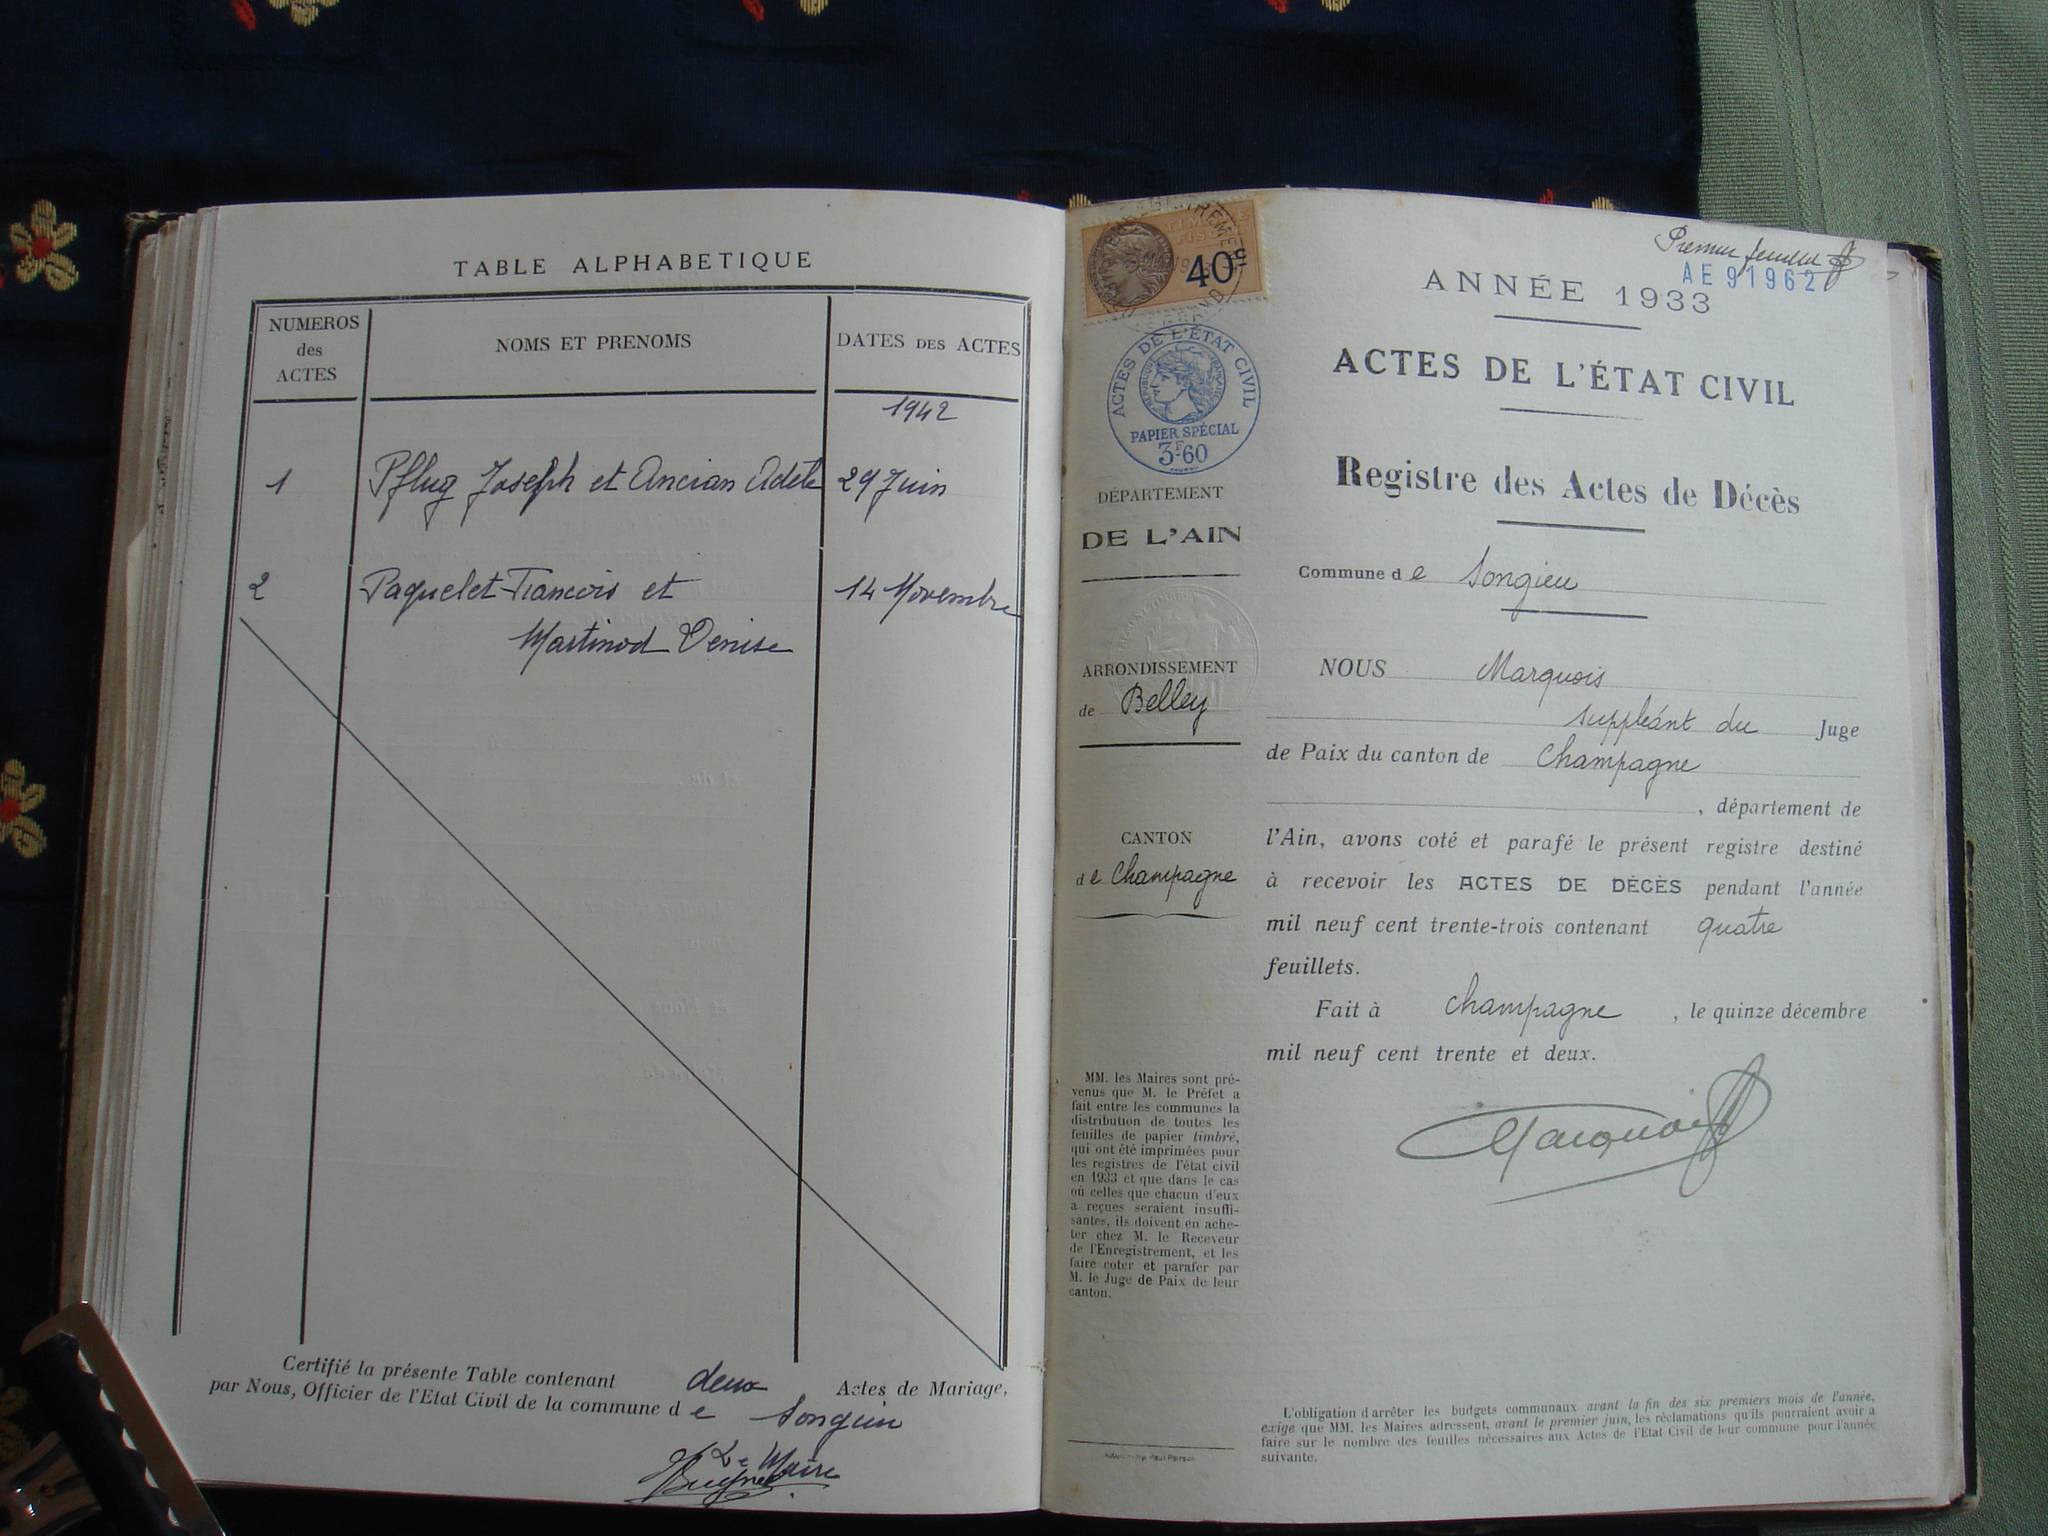 TABLE ALPHABETIQUE
NUMEROS
des
ACTES
NOMS ET PRENOMS
DATES DES ACTES
1942
1 Pflug Joseph et Ancian Adèle 29 Juin
2 Paquelet Francois et 14 Novembre
Martinod Denise
Certifié la présente Table contenant deux Actes de Mariage,
par Nous, Officier de l'Etat Civil de la commune de Songieu
Le Maire
40c
ACTES DE L'ÉTAT CIVIL
RÉPUBLIQUE FRANÇAISE
PAPIER SPÉCIAL
3F60
DÉPARTEMENT
DE L'AIN
ARRONDISSEMENT
de Belley
CANTON
de Champagne
MM. les Maires sont pré-
venus que M. le Préfet a
fait entre les communes la
distribution de toutes les
feuilles de papier timbré,
qui ont été imprimées pour
les registres de l'état civil
en 1933 et que dans le cas
où celles que chacun d'eux
a reçues seraient insuffi-
santes, ils doivent en ache-
ter chez M. le Receveur
de l'Enregistrement, et les
faire coter et parafer par
M. le Juge de Paix de leur
canton.
Premier feuillet
AE 91962
ANNÉE 1933
ACTES DE L'ÉTAT CIVIL
Registre des Actes de Décès
Commune de Songieu
NOUS Marquois
suppléant du Juge
de Paix du canton de Champagne
, département de
l'Ain, avons coté et parafé le présent registre destiné
à recevoir les ACTES DE DÉCÈS pendant l'année
mil neuf cent trente-trois contenant quatre
feuillets.
Fait à Champagne, le quinze décembre
mil neuf cent trente et deux.
Marquois
L'obligation d'arrêter les budgets communaux avant la fin des six premiers mois de l'année,
exige que MM. les Maires adressent, avant le premier juin, les réclamations qu'ils pourraient avoir à
faire sur le nombre des feuilles nécessaires aux Actes de l'Etat Civil de leur commune pour l'année
suivante.